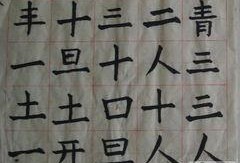 丰十三二青
一旦十人三
土土口十三
一开旦人人